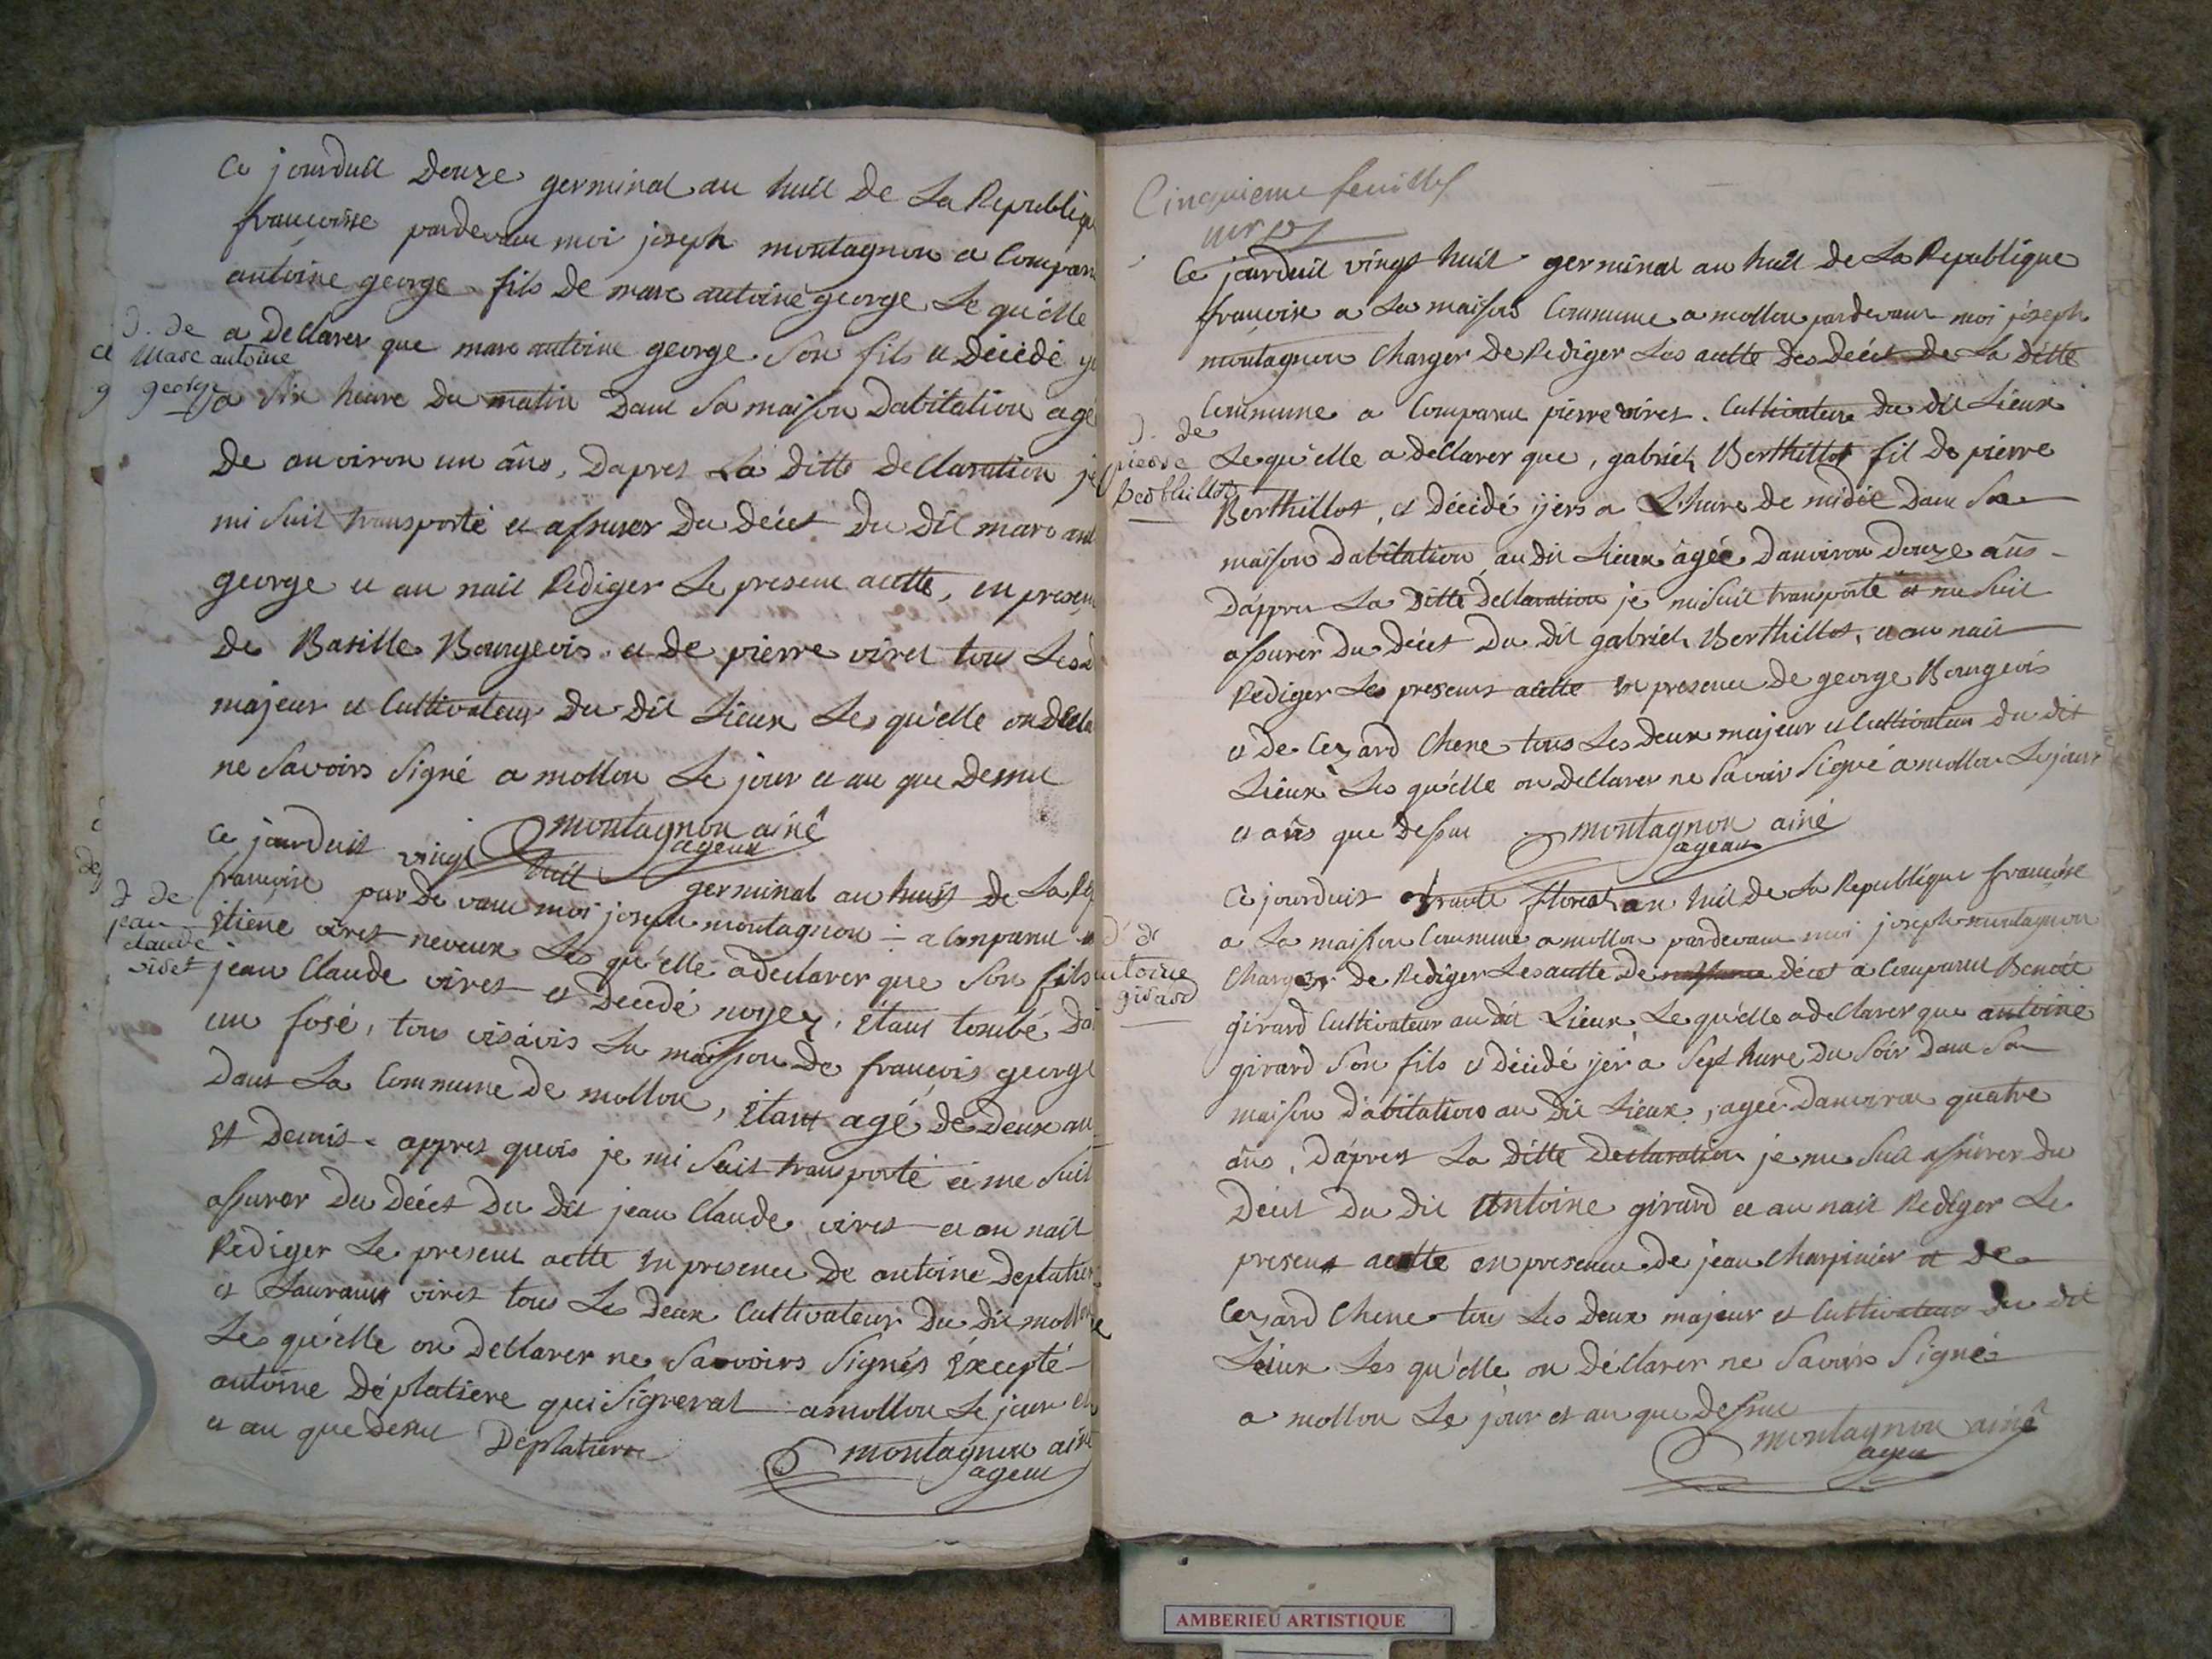 Ce jourduit Douze germinal au huit de La Republiqu
francoisse pardevanu moi joseph montagnon a Compar
antoine george fils de marc antoine george Le qu'elle
D. de
Marc antoine
george
a Dellarer que marc antoine george Son fils et Décédé
a Six heure Du matin Dans Sa maison Dabitation agé
De anviron un âns, Dapres La Ditte Dellaration je
mi Suit transporté et assurer Du Décet Du Dit marc ant
george et au nait Rediger Le present actte, en presen
de Basille Bourgeois et de pierre viret tous Les
majeur et Cultivateur Du Dit Lieux Les qu'elle on Decla
ne Savoirs Signé a mollon Le jour et an que Dessu
montagnon ainé
agent
Ce jourduit vingt huit germinal au huit de La Rep
francoise par De vanu moi joseph montagnon a Comparu
D de
jean
claude
viret
Etiene viret neveux Les qu'elle a declarer que Son fils
jean Claude viret et Decedé noyez, Etant tombé Da
un fosé, tous visâvis La maisson De francois george
Dans La Commune De mollon, Etant agé De Deux an
Et Demis appres quois je mi Suit transporté et me Suit
assurer Du Décet Du Dit jean Claude viret et au nait
Rediger Le present actte en presence De antoine Deplatier
et Lauranu viret tous Les Deux Cultivateur Du Dit mollon
Les qu'elle on Dellarer ne Savoirs Signés Excepté
antoine Déplatiere qui Signerat a mollon Le jour et
et an que Desu Deplatiere
montagnon ainé
agent
Cinquieme feuillet
Ce jourduit vingt huit germinal au huit de La Republique
francoise a La maison Commune a mollon pardevant moi joseph
montagnon Charger De Rediger Les actte Des Décet De La Ditte
Commune a Comparu pierre viret Cultivateur Du dit Lieux
D. de
pierre
berthillot
Le qu'elle a dellarer que, gabriel Berthillot fil De pierre
Berthillot, et Décidé ijers a L'hure de midie Dans Sa
maison Dabitation au Dit Lieux âgée Danviron Douze âns
D'áppres La Ditte Dellaration je mi Suit transporté et me Suit
assurer Du Décet Du Dit gabriel Berthillot, et au nait
Rediger Les presens actte en presence De george Bourgeois
et De Cezard Chene tous Les Deux majeur et Cultivateur Du Dit
Lieux Les qu'elle on Dellarer ne Savoir Signé a mollon Le jour
et ans que Dessu montagnon ainé
agent
Ce jourduit trante floreal an huit de La Republique francoise
a La maisson Commune a mollon pardevanu moi joseph montagnon
D de
antoine
girard
Charger De Rediger Les actte De naissance décet a Comparu Benoit
girard Cultivateur au dit Lieux Le qu'elle a dellarer que antoine
girard Son fils et Décidé ijer a Sept hure Du Soir Dans Sa
maison d'abitations au Dit Lieux, agée Danviron quatre
âns, D'apres La Ditte Declaration je me Suit assurer Du
Décet Du Dit Antoine girard et au nait Rediger Le
present actte en presence De jean Charpinier et De
Cezard Chene tous Les Deux majeur et Cultivateur Du dit
Lieux Les qu'elle on Déllarer ne Savoirs Signés
a mollon Le jour et an que Dessu
montagnon ainé
agent
AMBERIEU ARTISTIQUE